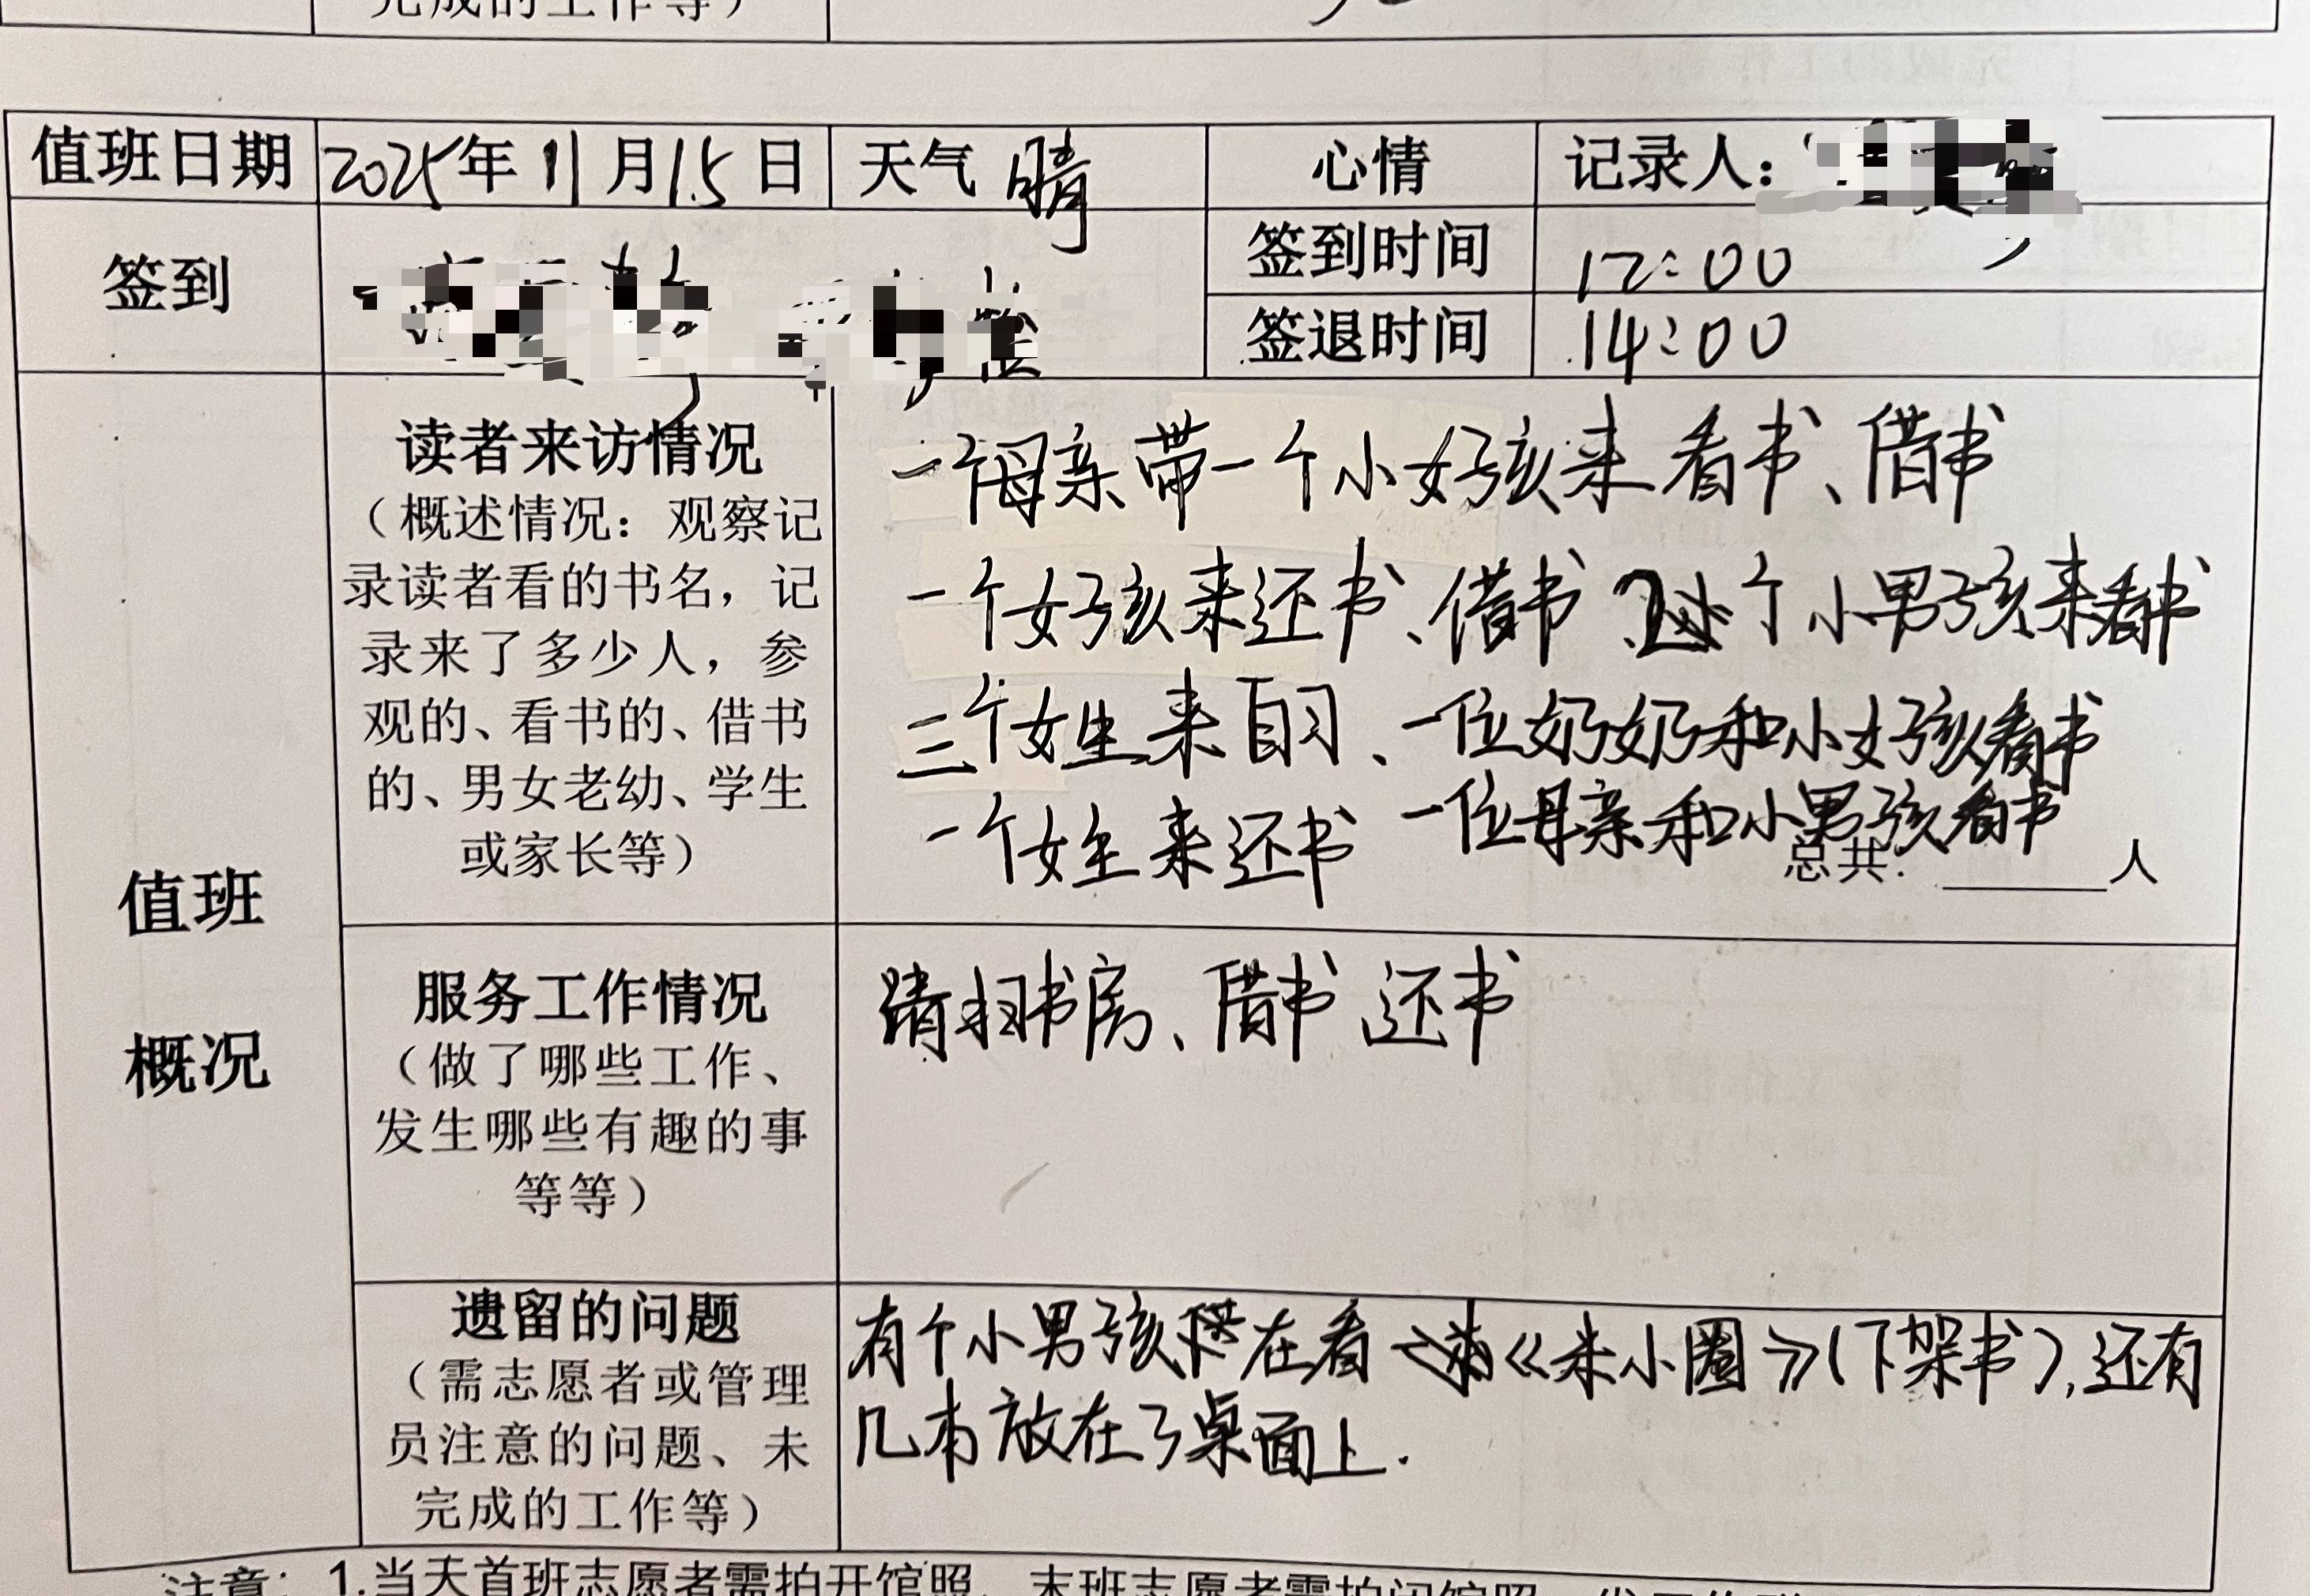 完成的工作等）
值班日期 2025年11月15日 天气 晴 心情 记录人：
签到 签到时间 12:00
签退时间 14:00
值班概况
读者来访情况
（概述情况：观察记
录读者看的书名，记
录来了多少人，参
观的、看书的、借书
的、男女老幼、学生
或家长等）
一个母亲带一个小女孩来看书、借书
一个女孩来还书、借书 个小男孩来看书
三个女生来自习、一位奶奶和小女孩看书
一个女生来还书 一位母亲和小男孩看书
总共：______人
服务工作情况
（做了哪些工作、
发生哪些有趣的事
等等）
清扫书房、借书 还书
遗留的问题
（需志愿者或管理
员注意的问题、未
完成的工作等）
有个小男孩 在看《米小圈》(下架书),还有
几本放在了桌面上.
注意：1.当天首班志愿者需拍开馆照，末班志愿者需拍闭馆照，